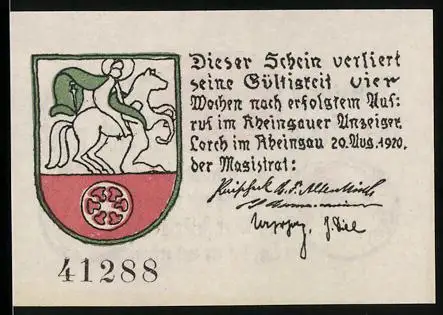 Dieser Schein verliert
seine Gültigkeit vier
Wochen nach erfolgtem Auf:
ruf im Rheingauer Anzeiger.
Lorch im Rheingau 20. Aug. 1920.
der Magistrat:
J. Diel
41288